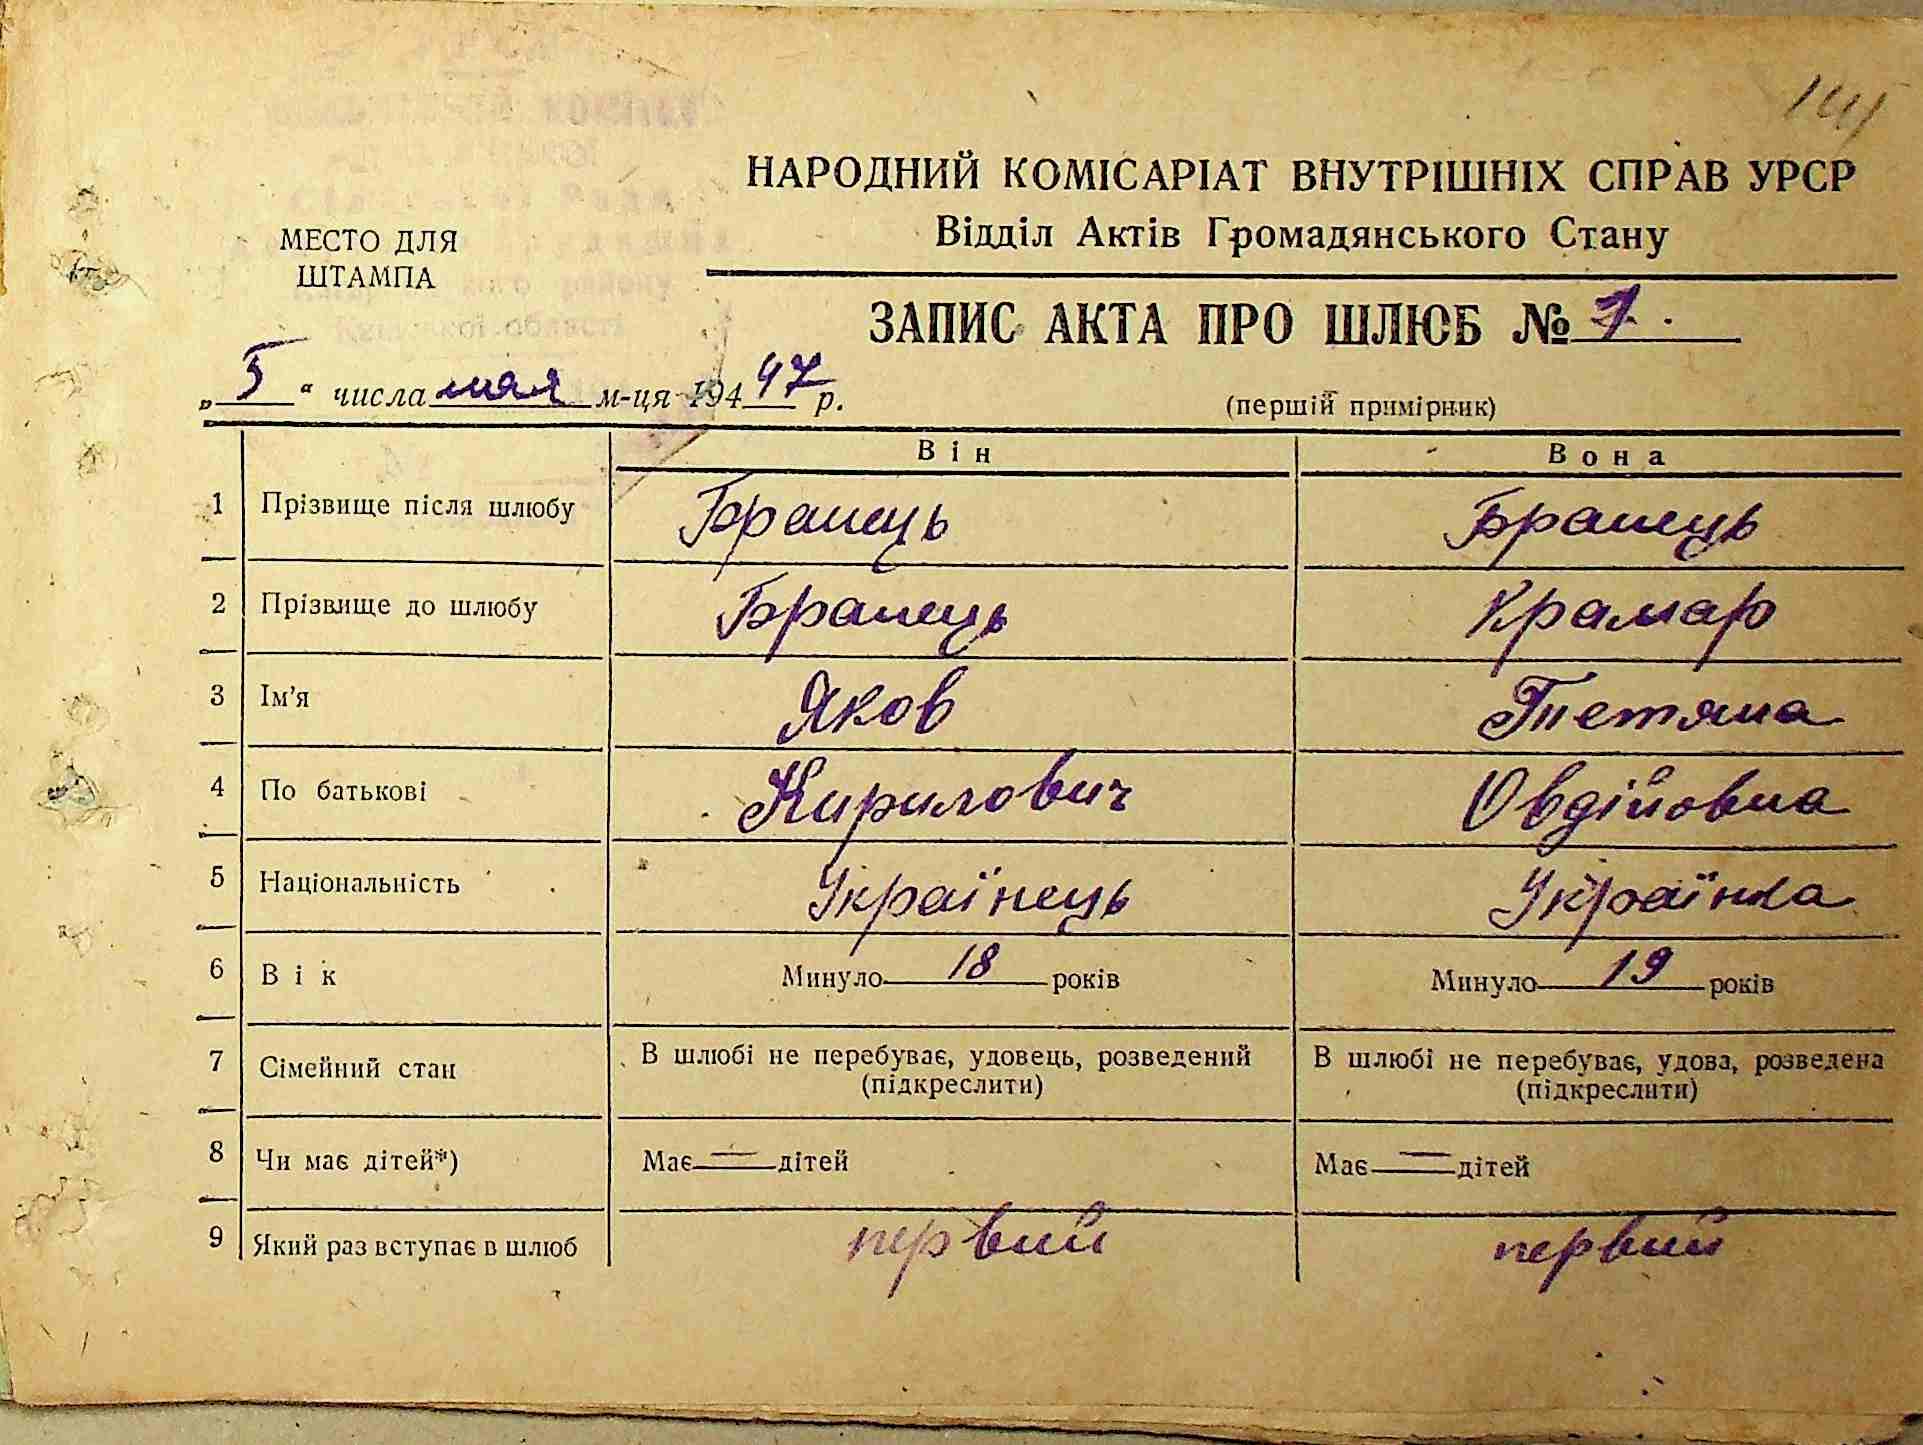 НАРОДНИЙ КОМІСАРІАТ ВНУТРІШНІХ СПРАВ УРСР
Відділ Актів Громадянського Стану
МЕСТО ДЛЯ
ШТАМПА
ЗАПИС АКТА ПРО ШЛЮБ № 1.
„5“ числа мая м-ця 194 47 р.
(перший примірник)
Він Вона
1 Прізвище після шлюбу Бранець Бранець
2 Прізвище до шлюбу Бранець Крамар
3 Ім'я Яков Тетяна
4 По батькові Кирилович Овдійовна
5 Національність Українець Українка
6 Вік Минуло 18 років Минуло 19 років
7 Сімейний стан В шлюбі не перебуває, удовець, розведений В шлюбі не перебуває, удова, розведена
(підкреслити) (підкреслити)
8 Чи має дітей*) Має — дітей Має — дітей
9 Який раз вступає в шлюб первий первий